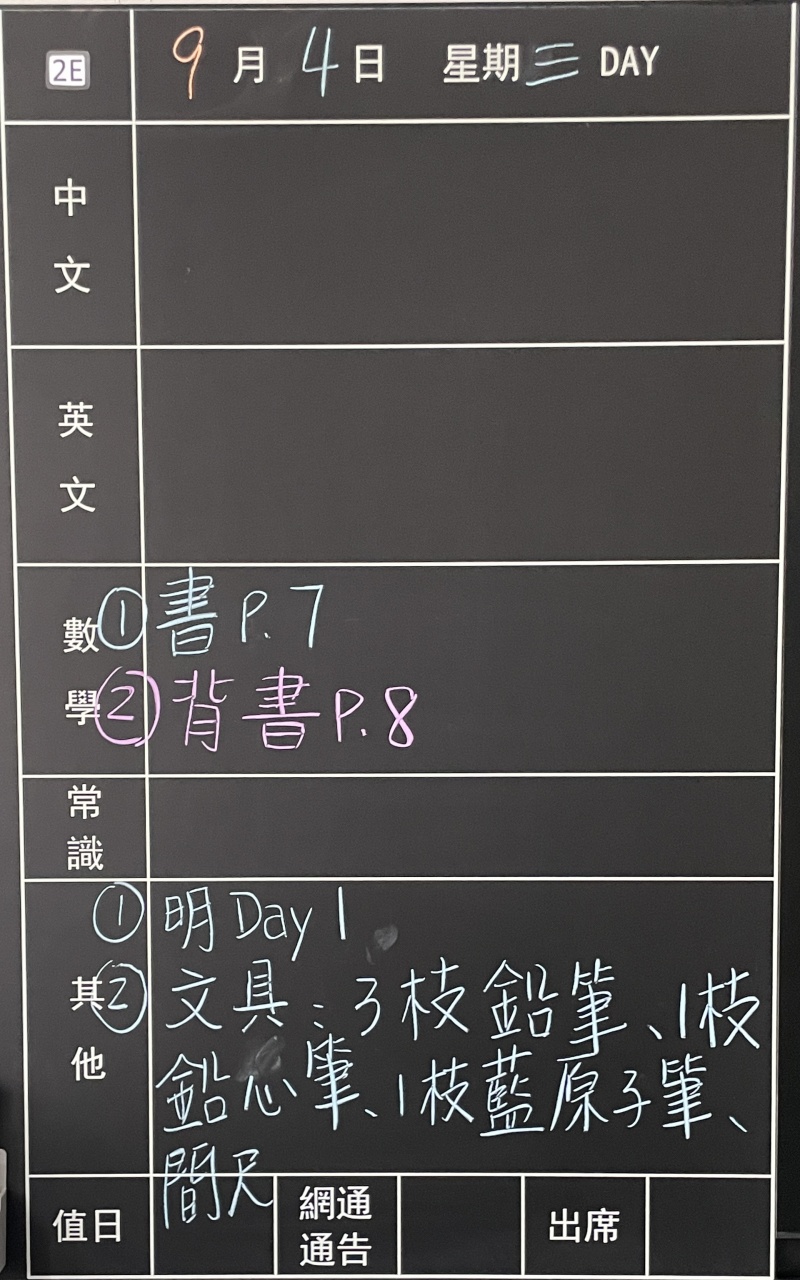 2E 9月4日 星期三 DAY
中文
英文
數學 ①書P.7
②背書P.8
常識
其他 ①明Day 1
②文具:3枝鉛筆、1枝
鉛心筆、1枝藍原子筆、
間尺
值日 網通通告 出席